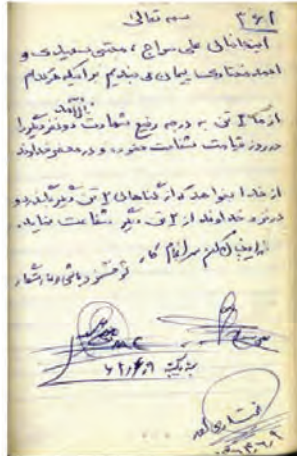 بسمه تعالی ۳۶۱
اینجانبان علی سراج، مجتبی سعیدی و
احمد مختاری پیمان می‌بندیم برای که هرکدام
از ما ۳ تن به درجه رفیع شهادت نائل آمد دو نفر دیگر را
در روز قیامت شفاعت نموده و در محضر خداوند
از خدا بخواهد که از گناهان ۲ تن دیگر بگذرد و
در نزد خداوند از ۲ تن دیگر شفاعت نماید.
خدایا چنان کن سرانجام کار
تو خشنود باشی و ما رستگار
۶۲/۶/۹